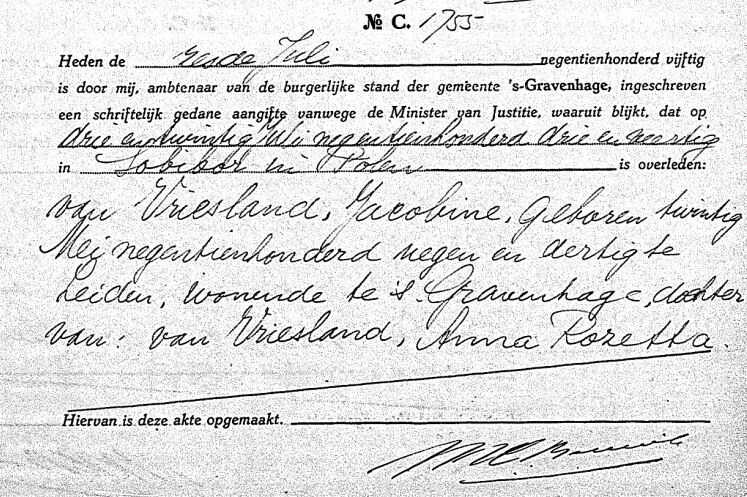 № C. 1755
Heden de zesde Juli negentienhonderd vijftig
is door mij, ambtenaar van de burgerlijke stand der gemeente 's-Gravenhage, ingeschreven
een schriftelijk gedane aangifte vanwege de Minister van Justitie, waaruit blijkt, dat op
drie en twintig Juli negentienhonderd drie en veertig
in Sobibor in Polen is overleden:
van Vriesland, Jacobine, geboren twintig
Mei negentienhonderd negen en dertig te
Leiden, wonende te 's-Gravenhage, dochter
van: van Vriesland, Anna Rozetta.
Hiervan is deze akte opgemaakt.